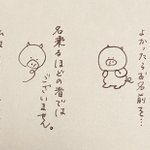 よかったらお名前を…
名乗るほどの者では
ございません。